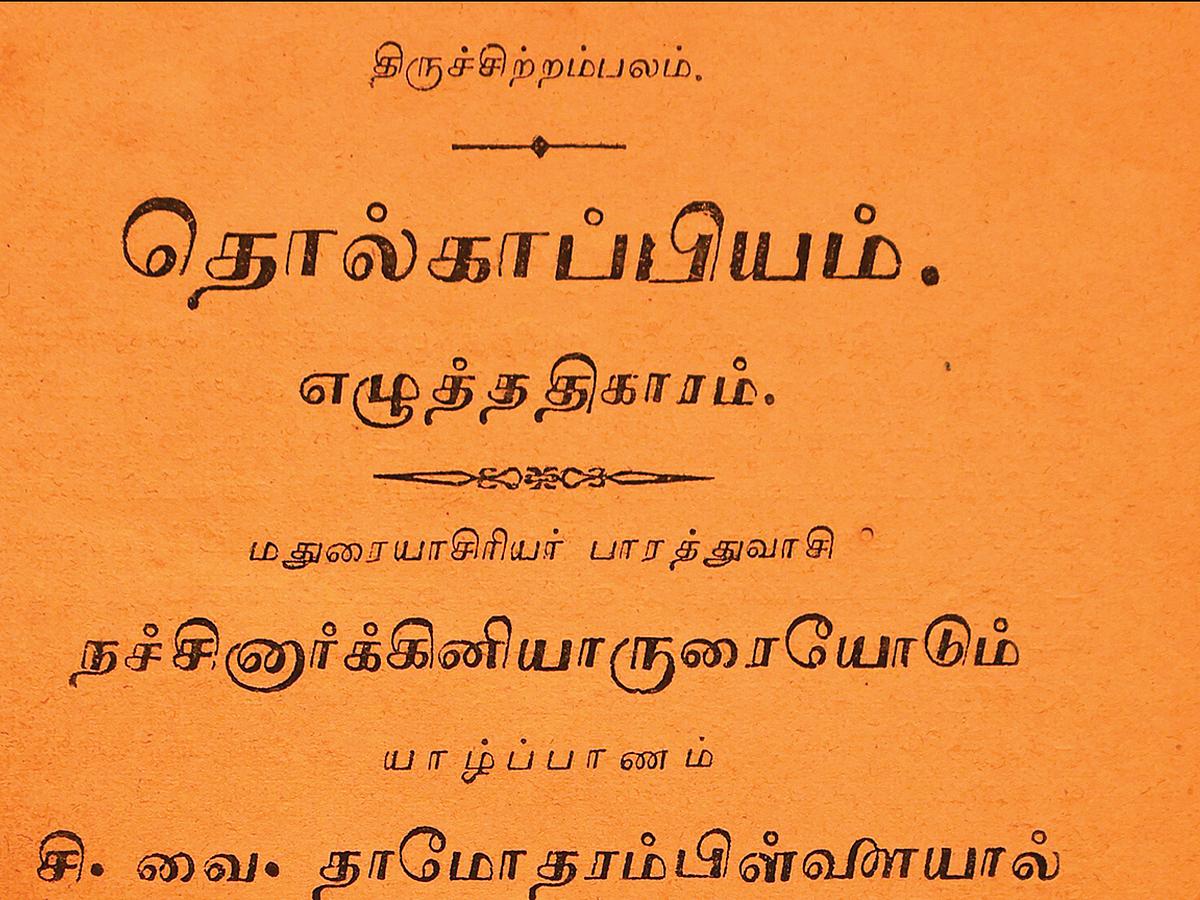 திருச்சிற்றம்பலம்.
தொல்காப்பியம்.
எழுத்ததிகாரம்.
மதுரையாசிரியர் பாரத்துவாசி
நச்சினார்க்கினியாருரையோடும்
யாழ்ப்பாணம்
சி. வை. தாமோதரம்பிள்ளையால்